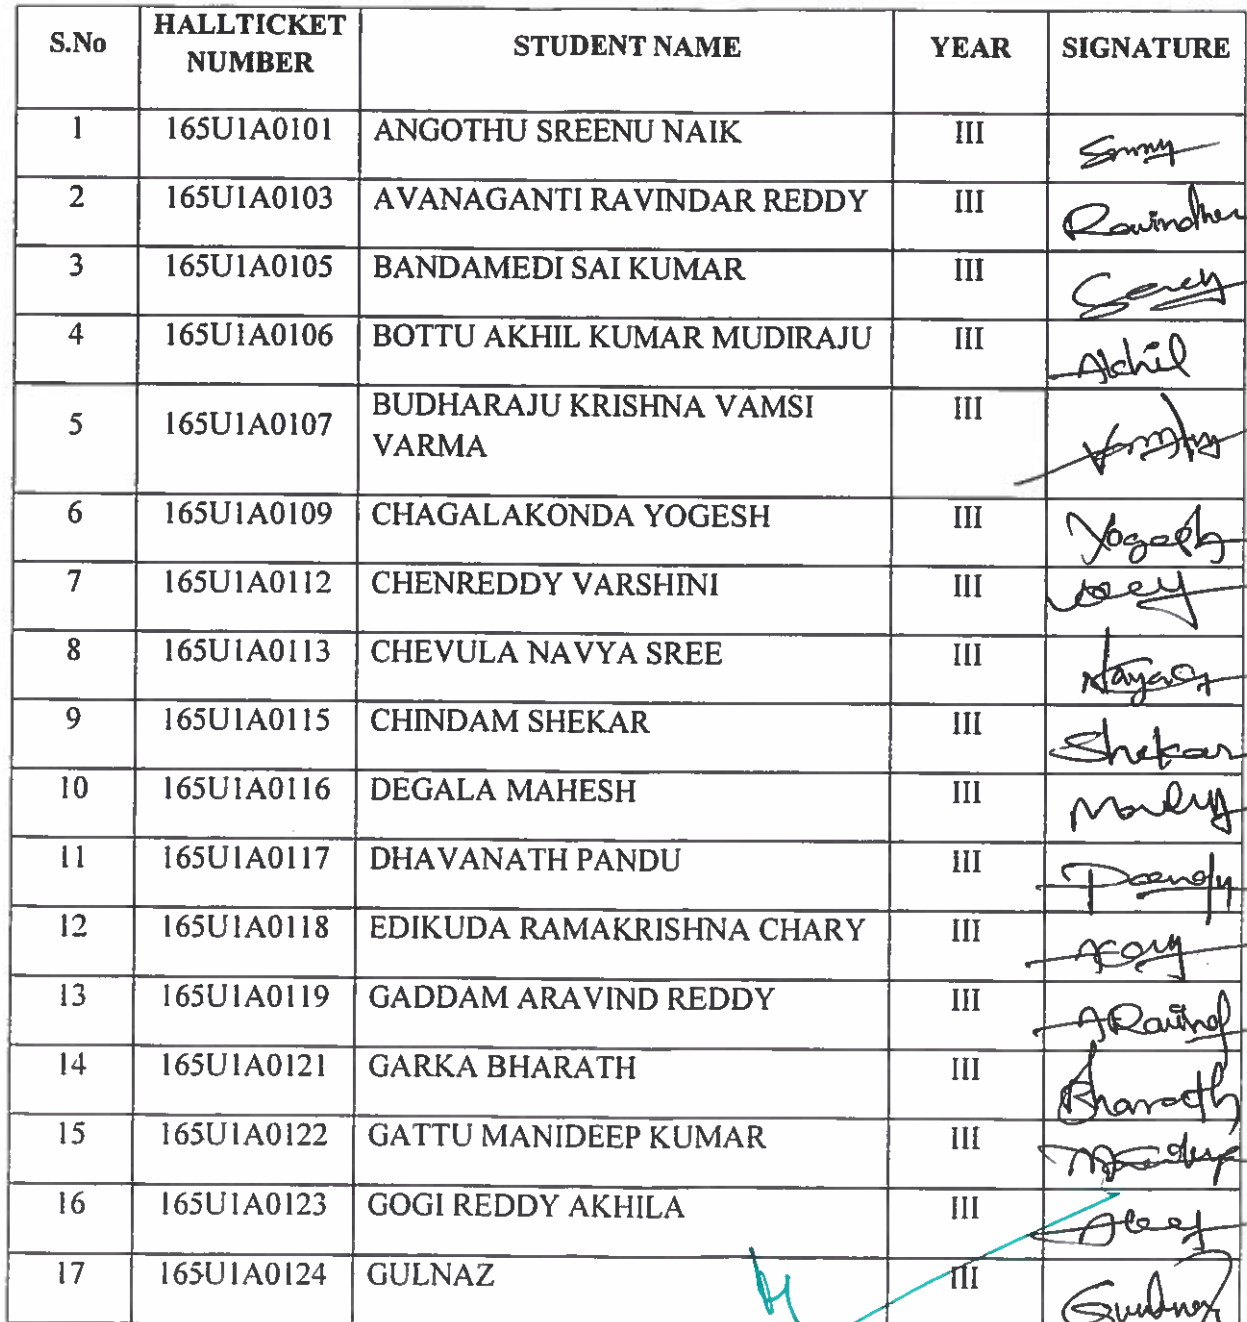 S.No HALLTICKET NUMBER STUDENT NAME YEAR SIGNATURE
1 165U1A0101 ANGOTHU SREENU NAIK III
2 165U1A0103 AVANAGANTI RAVINDAR REDDY III Ravindher
3 165U1A0105 BANDAMEDI SAI KUMAR III
4 165U1A0106 BOTTU AKHIL KUMAR MUDIRAJU III Akhil
5 165U1A0107 BUDHARAJU KRISHNA VAMSI
VARMA III
6 165U1A0109 CHAGALAKONDA YOGESH III Yogesh
7 165U1A0112 CHENREDDY VARSHINI III
8 165U1A0113 CHEVULA NAVYA SREE III
9 165U1A0115 CHINDAM SHEKAR III Shekar
10 165U1A0116 DEGALA MAHESH III
11 165U1A0117 DHAVANATH PANDU III
12 165U1A0118 EDIKUDA RAMAKRISHNA CHARY III
13 165U1A0119 GADDAM ARAVIND REDDY III ARavind
14 165U1A0121 GARKA BHARATH III Bharath
15 165U1A0122 GATTU MANIDEEP KUMAR III
16 165U1A0123 GOGI REDDY AKHILA III
17 165U1A0124 GULNAZ III Gulnaz